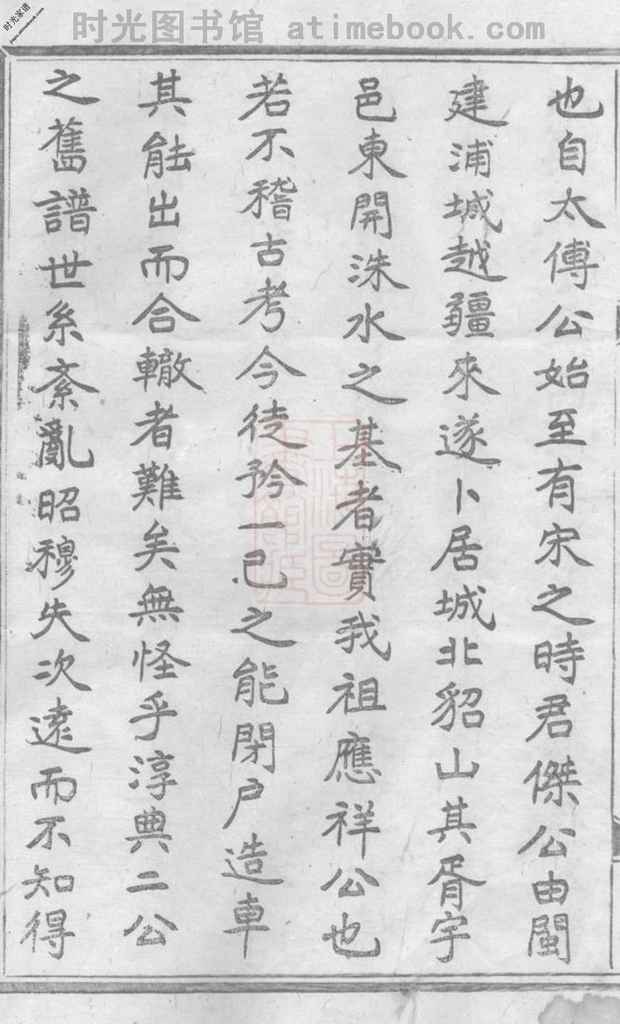 时光家谱
时光图书馆 atimebook.com
也自太傅公始至有宋之時君傑公由閩
建浦城越疆來遂卜居城北貂山其胥宇
邑東開洙水之基者實我祖應祥公也
若不稽古考今徒矜一已之能閉户造車
其能出而合轍者難矣無怪乎淳典二公
之舊譜世系紊亂昭穆失次遠而不知得